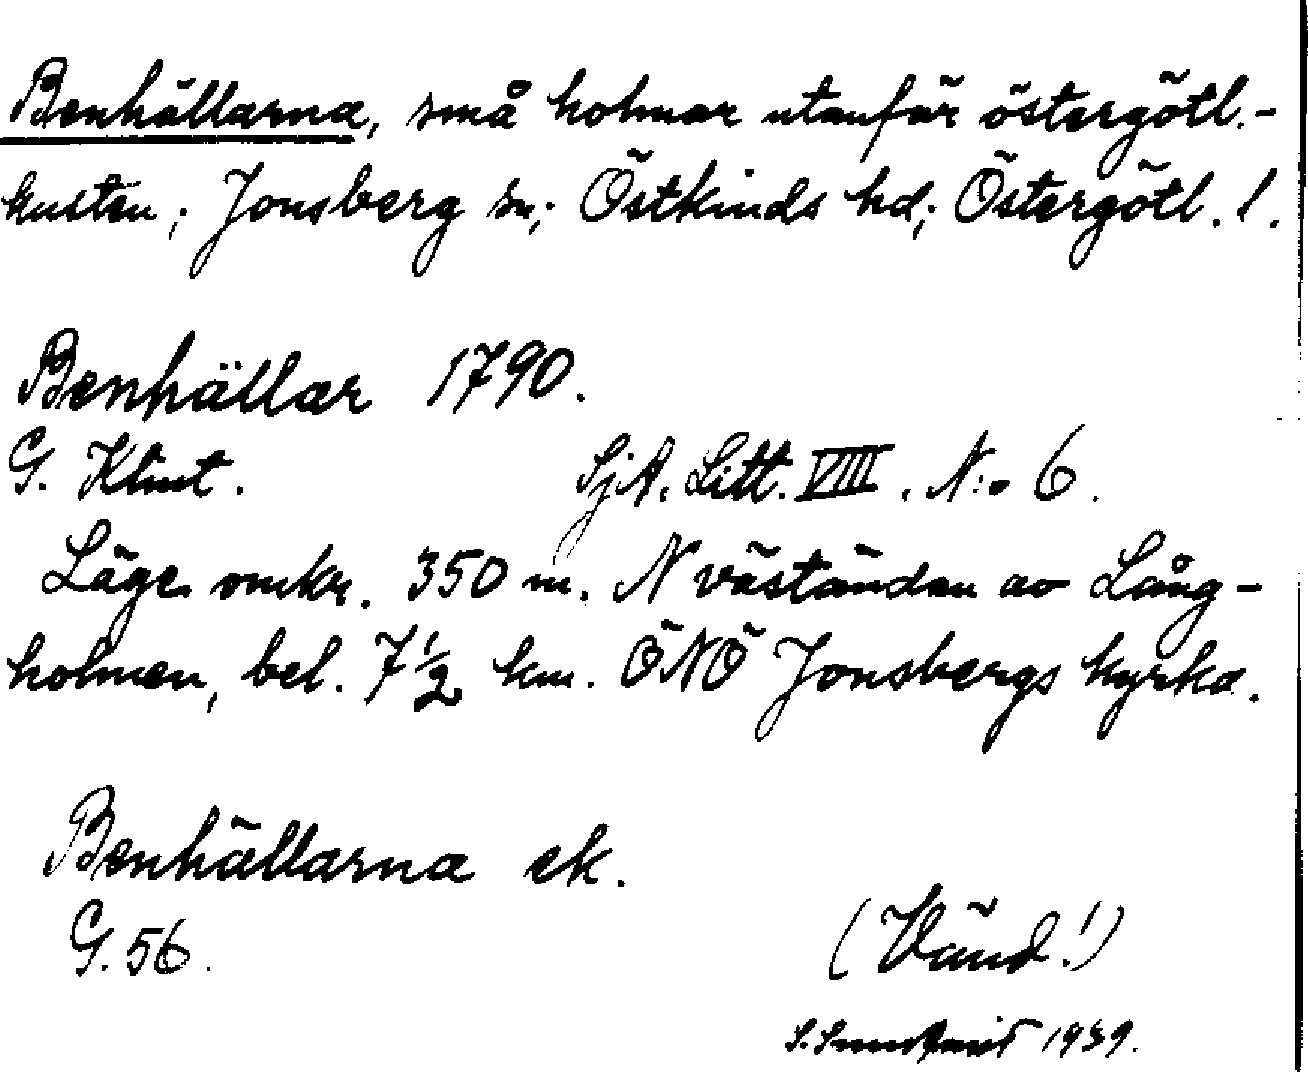 Benhällarna, små holmar utanför östergötl.-
kusten; Jonsberg sn; Östkinds hd; Östergötl. l.
Benhällar 1790.
G. Klint. SjA. Litt. VIIII. N:o 6.
Läge omkr. 350 m. N väständen av Lång-
holmen, bel. 7½ km. ÖNÖ Jonsbergs kyrka.
Benhällarna ek.
G. 56.
(Vänd!)
S. Sundqvist 1939.